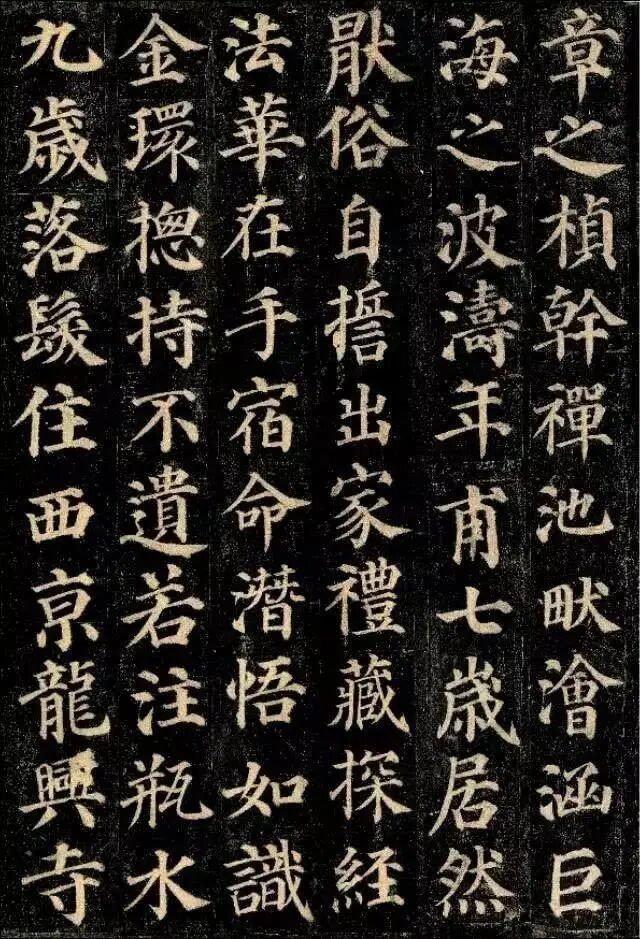 章之楨幹禪池畎澮涵巨
海之波濤年甫七歲居然
猒俗自誓出家禮藏探経
法華在手宿命潛悟如識
金環揔持不遺若注瓶水
九歲落髮住西京龍興寺